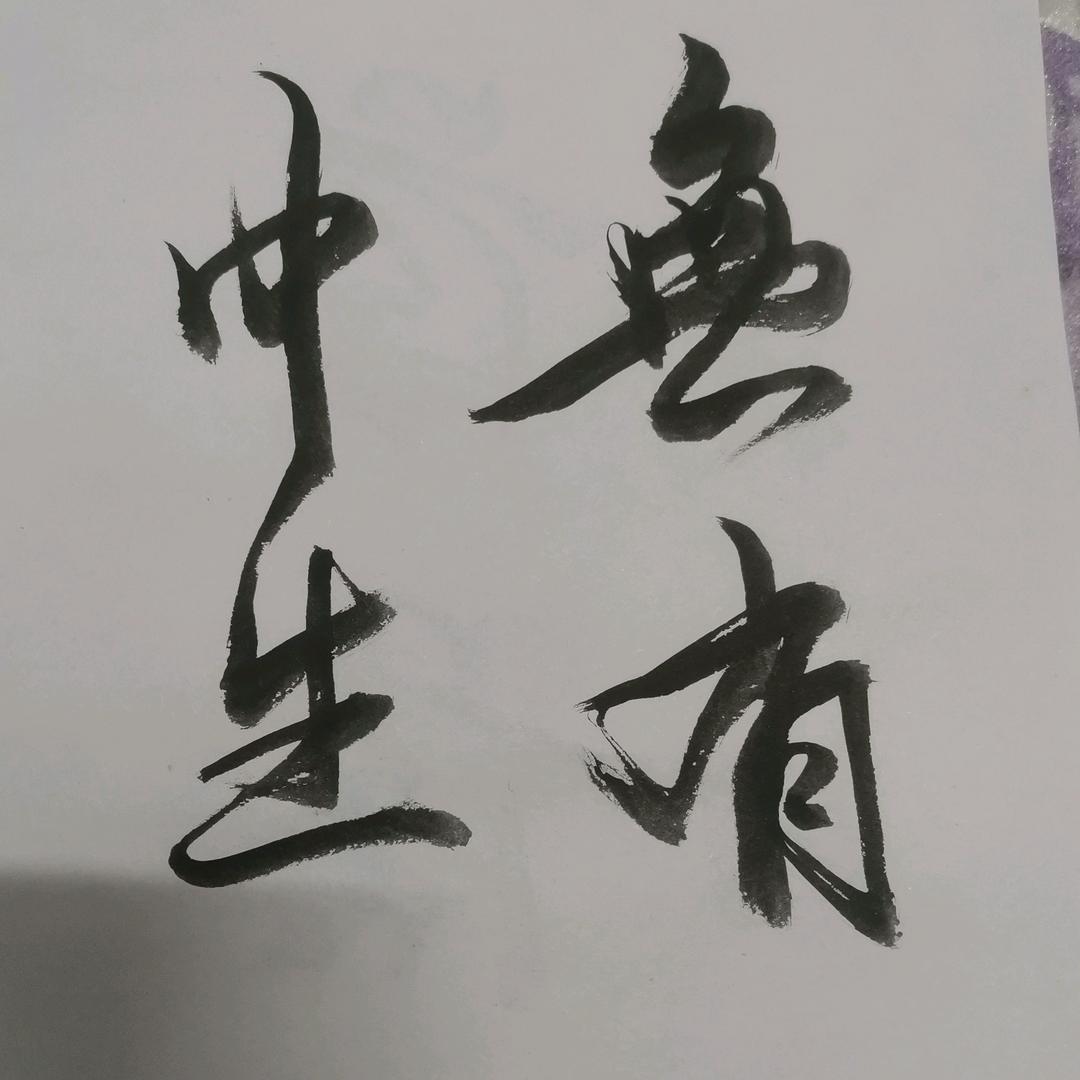 無有
中生